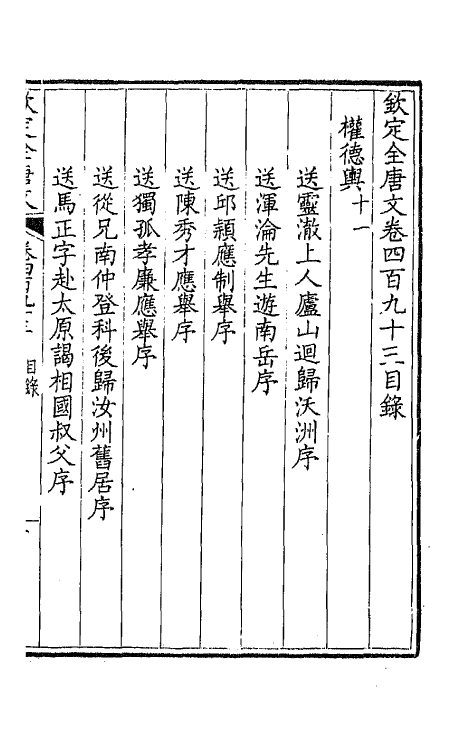 欽定全唐文卷四百九十三目錄
權德輿十一
送靈澈上人廬山迴歸沃洲序
送渾淪先生遊南岳序
送邱頴應制舉序
送陳秀才應舉序
送獨孤孝廉應舉序
送從兄南仲登科後歸汝州舊居序
送馬正字赴太原謁相國叔父序
欽定全唐文
卷四百九十三 目錄
一